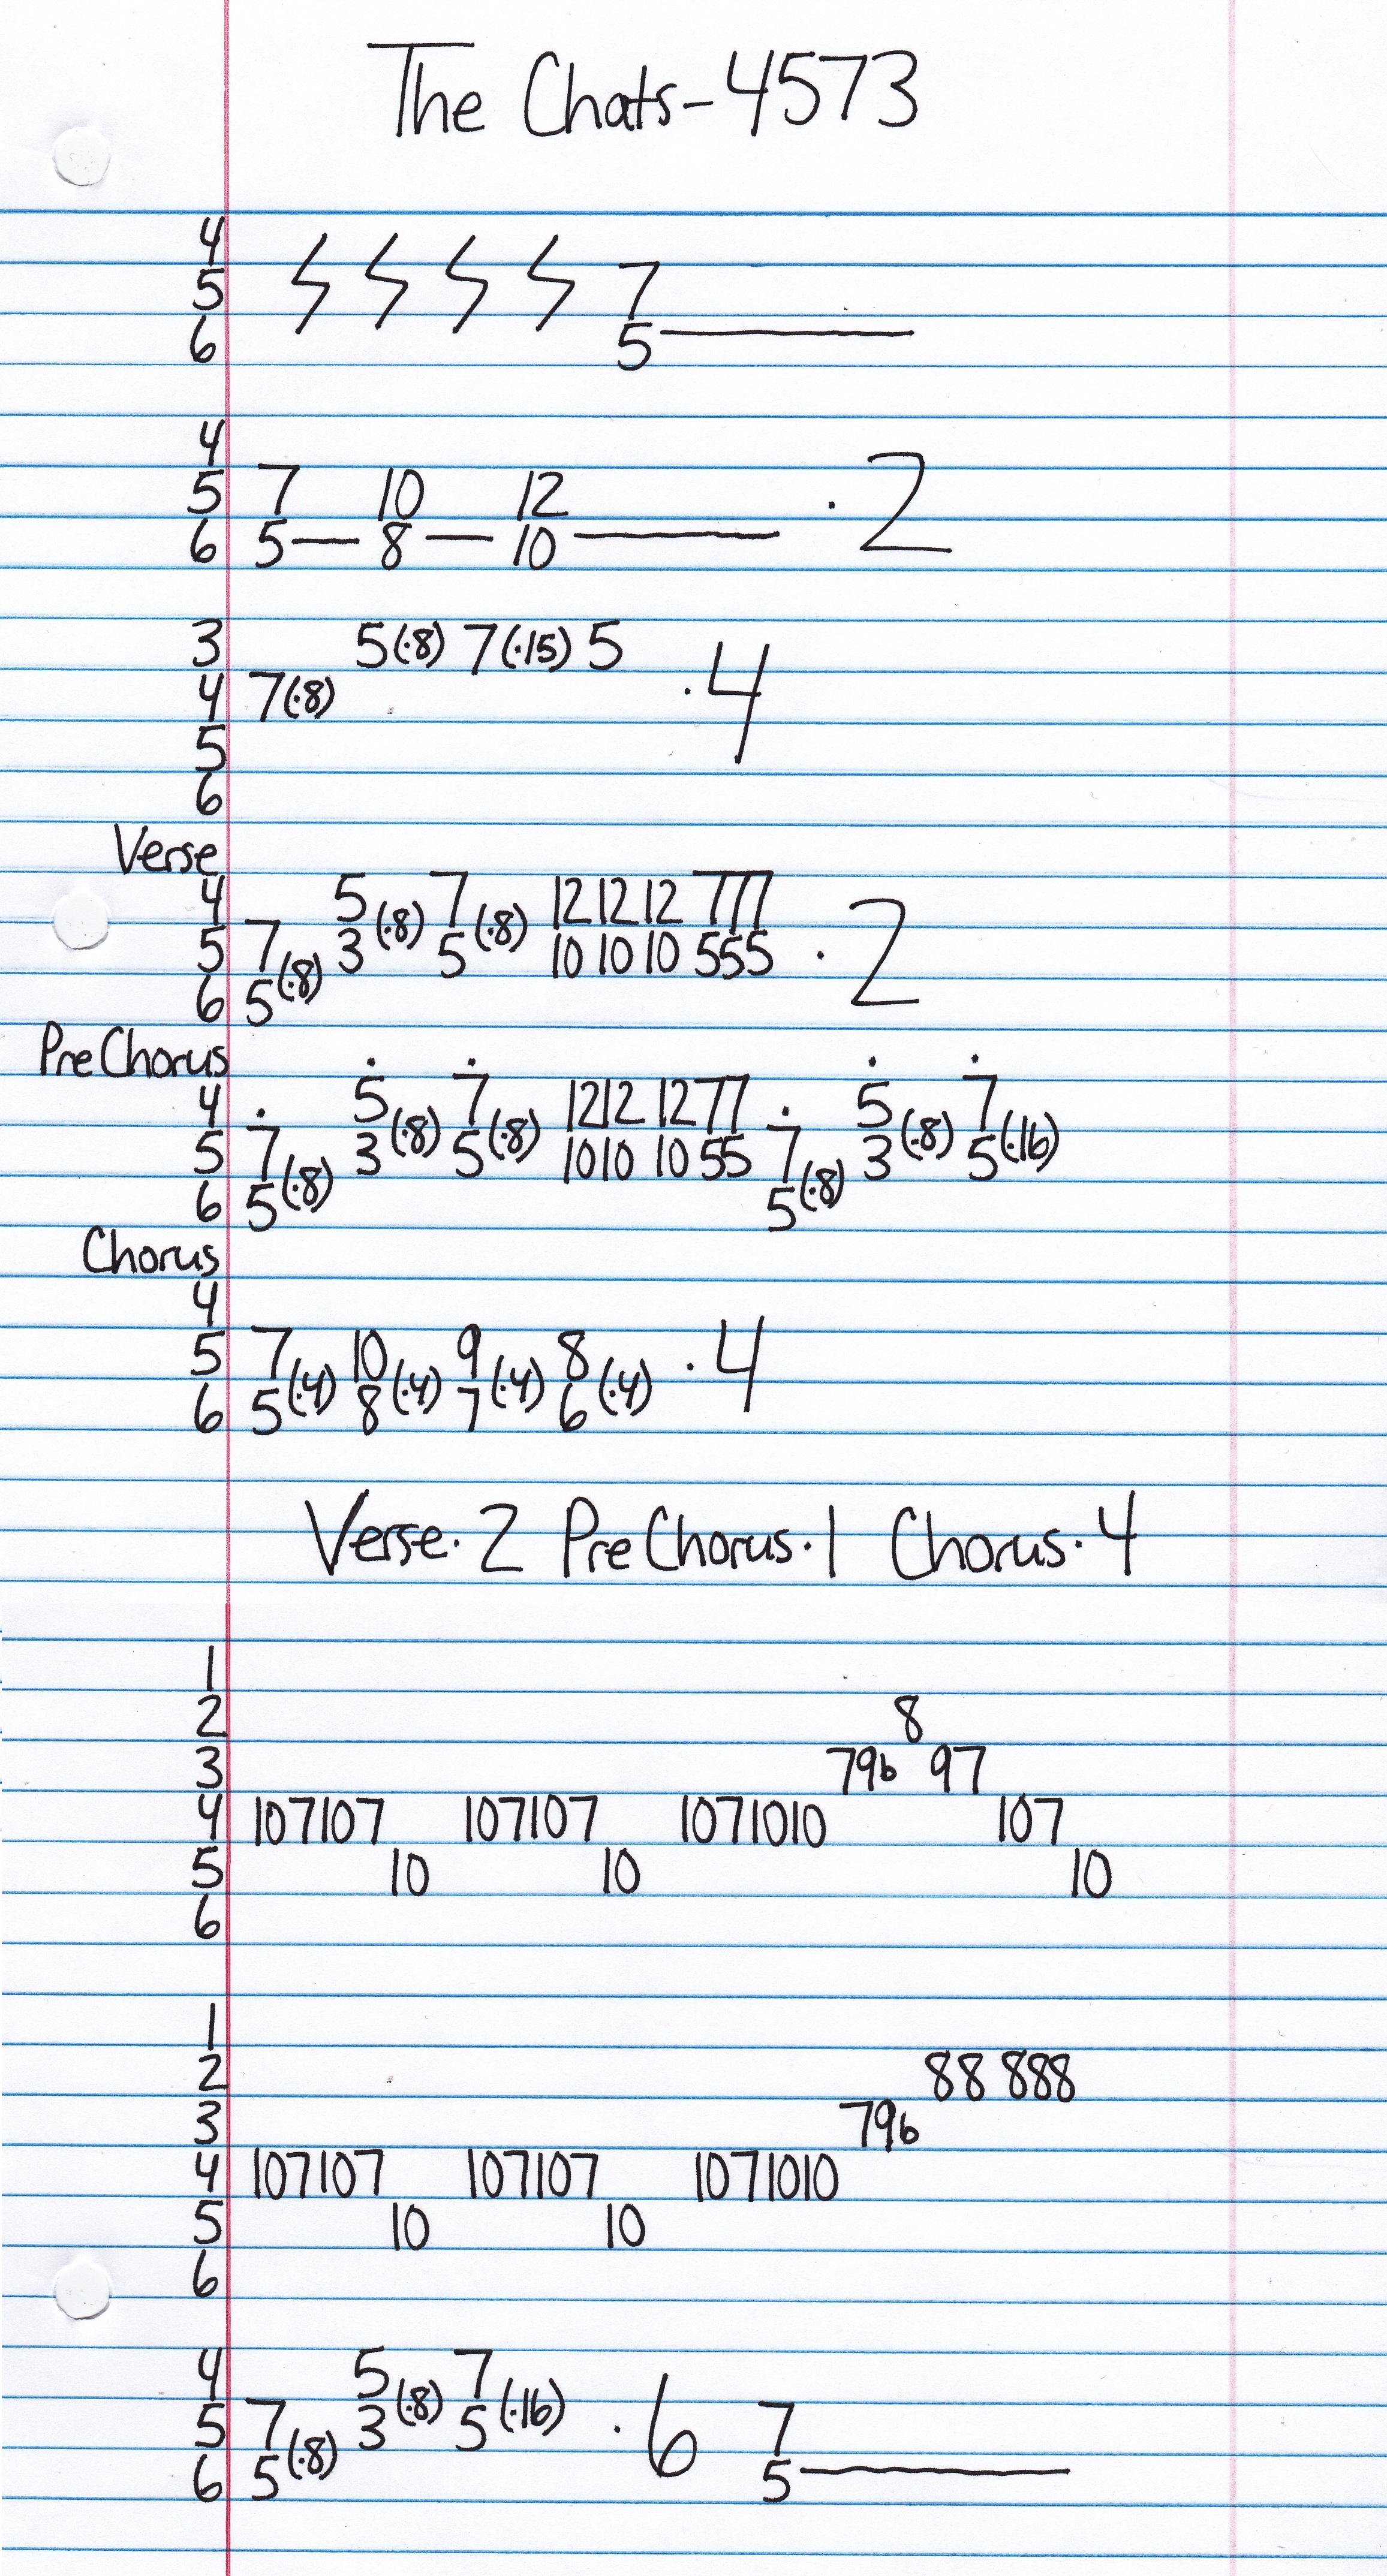 The Chats - 4573
4
5 7
6 5
4
5 7 10 12 · 2
6 5 — 8 — 10
3 5(·8) 7(·15) 5
4 7(·8) · 4
5
6
Verse
4 5(·8) 7(·8) 12 12 12 7 7 7
5 7(·8) 3 5 10 10 10 5 5 5 · 2
6 5
PreChorus
4 5(·8) 7(·8) 12 12 12 7 7 5(·8) 7(·16)
5 7(·8) 3 5 10 10 10 5 5 7(·8) 3 5
6 5 5
Chorus
4
5 7(·4) 10(·4) 9(·4) 8(·4) · 4
6 5 8 7 6
Verse · 2 PreChorus · 1 Chorus · 4
1
2 8
3 7 9b 9 7
4 10 7 10 7 10 7 10 7 10 7 10 10 10 7
5 10 10 10
6
1
2 8 8 8 8 8
3 7 9b
4 10 7 10 7 10 7 10 7 10 7 10 10
5 10 10
6
4 5(·8) 7(·16)
5 7(·8) 3 5 · 6 7
6 5 5